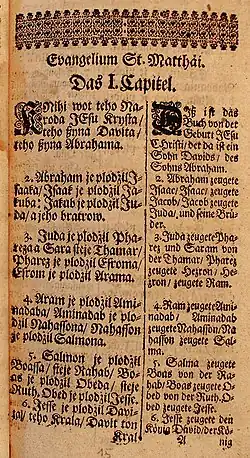 Evangelium St. Matthäi.
Das I. Capitel.
Knihi wot teho Na-
roda JEsu Krysta/
teho ßyna Davita/
teho ßyna Abrahama.
2. Abraham je plodźil J-
saaka/ Jsaak je plodźil Ja-
kuba: Jakub je plodźil Ju-
da/ a jeho bratrow.
3. Juda je plodźil Pha-
reza a Sara steje Thamar/
Pharez je plodźil Esroma/
Esrom je plodźil Arama.
4. Aram je plodźil Ami-
nadaba/ Aminadab je plo-
dźil Nahassona/ Nahasson
je plodźil Salmona.
5. Salmon je plodźil
Boassa/ steje Rahab/ Bo-
as je plodźil Obeda/ steje
Ruth, Obed je plodźil Jesse.
6. Jesse je plodźil Davi-
ta/ teho Krala/ Davit ton
Kral
Diß ist das
Buch von der
Geburt JEsu
Christi/ der da ist ein
Sohn Davids/ des
Sohns Abraham.
2. Abraham zeugete
Jsaac/ Jsaac zeugete
Jacob/ Jacob zeugete
Juda/ und seine Brü-
der.
3. Juda zeugete Pha-
rez und Saram von
der Thamar/ Pharez
zeugete Hezron/ He-
zron/ zeugete Ram.
4. Ram zeugete Ami-
nadab/ Aminadab
zeugete Nahasson/ Na-
hasson zeugete Sal-
ma.
5. Salma zeugete
Boas von der Ra-
hab/ Boas zeugete O-
bed von der Ruth, O-
bed zeugete Jesse.
6. Jesse zeugete den
König David/ der Kö-
A nig
15